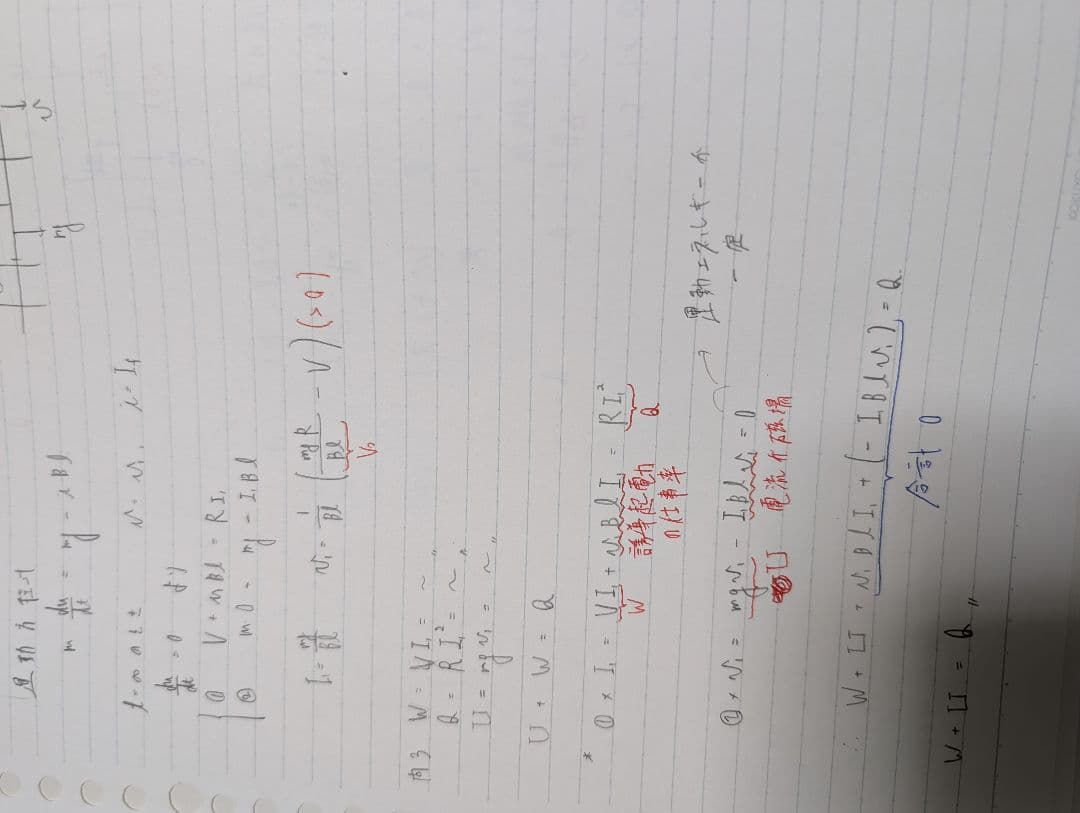 運動方程式
m du/dt = mg - iBl
mg
v
t=∞のとき v=v₁, i=I₁
du/dt = 0 より
① V + v₁Bl = RI₁
② m0 = mg - I₁Bl
I₁ = mg/Bl v₁ = 1/Bl (mgR/Bl - V) (>0)
V₀
問3 W = VI₁ = 〃
Q = RI₁² = 〃
U = mgv₁ = 〃
U + W = Q
* ① × I₁ = VI₁ + v₁BlI₁ = RI₁²
W 誘導起電力 Q
の仕事率
② × v₁ = mgv₁ - I₁Blv₁ = 0 → 運動エネルギー一定
U 電流が磁場
∴ W + U + v₁BlI₁ + (-I₁Blv₁) = Q
合計 0
W + U = Q 〃